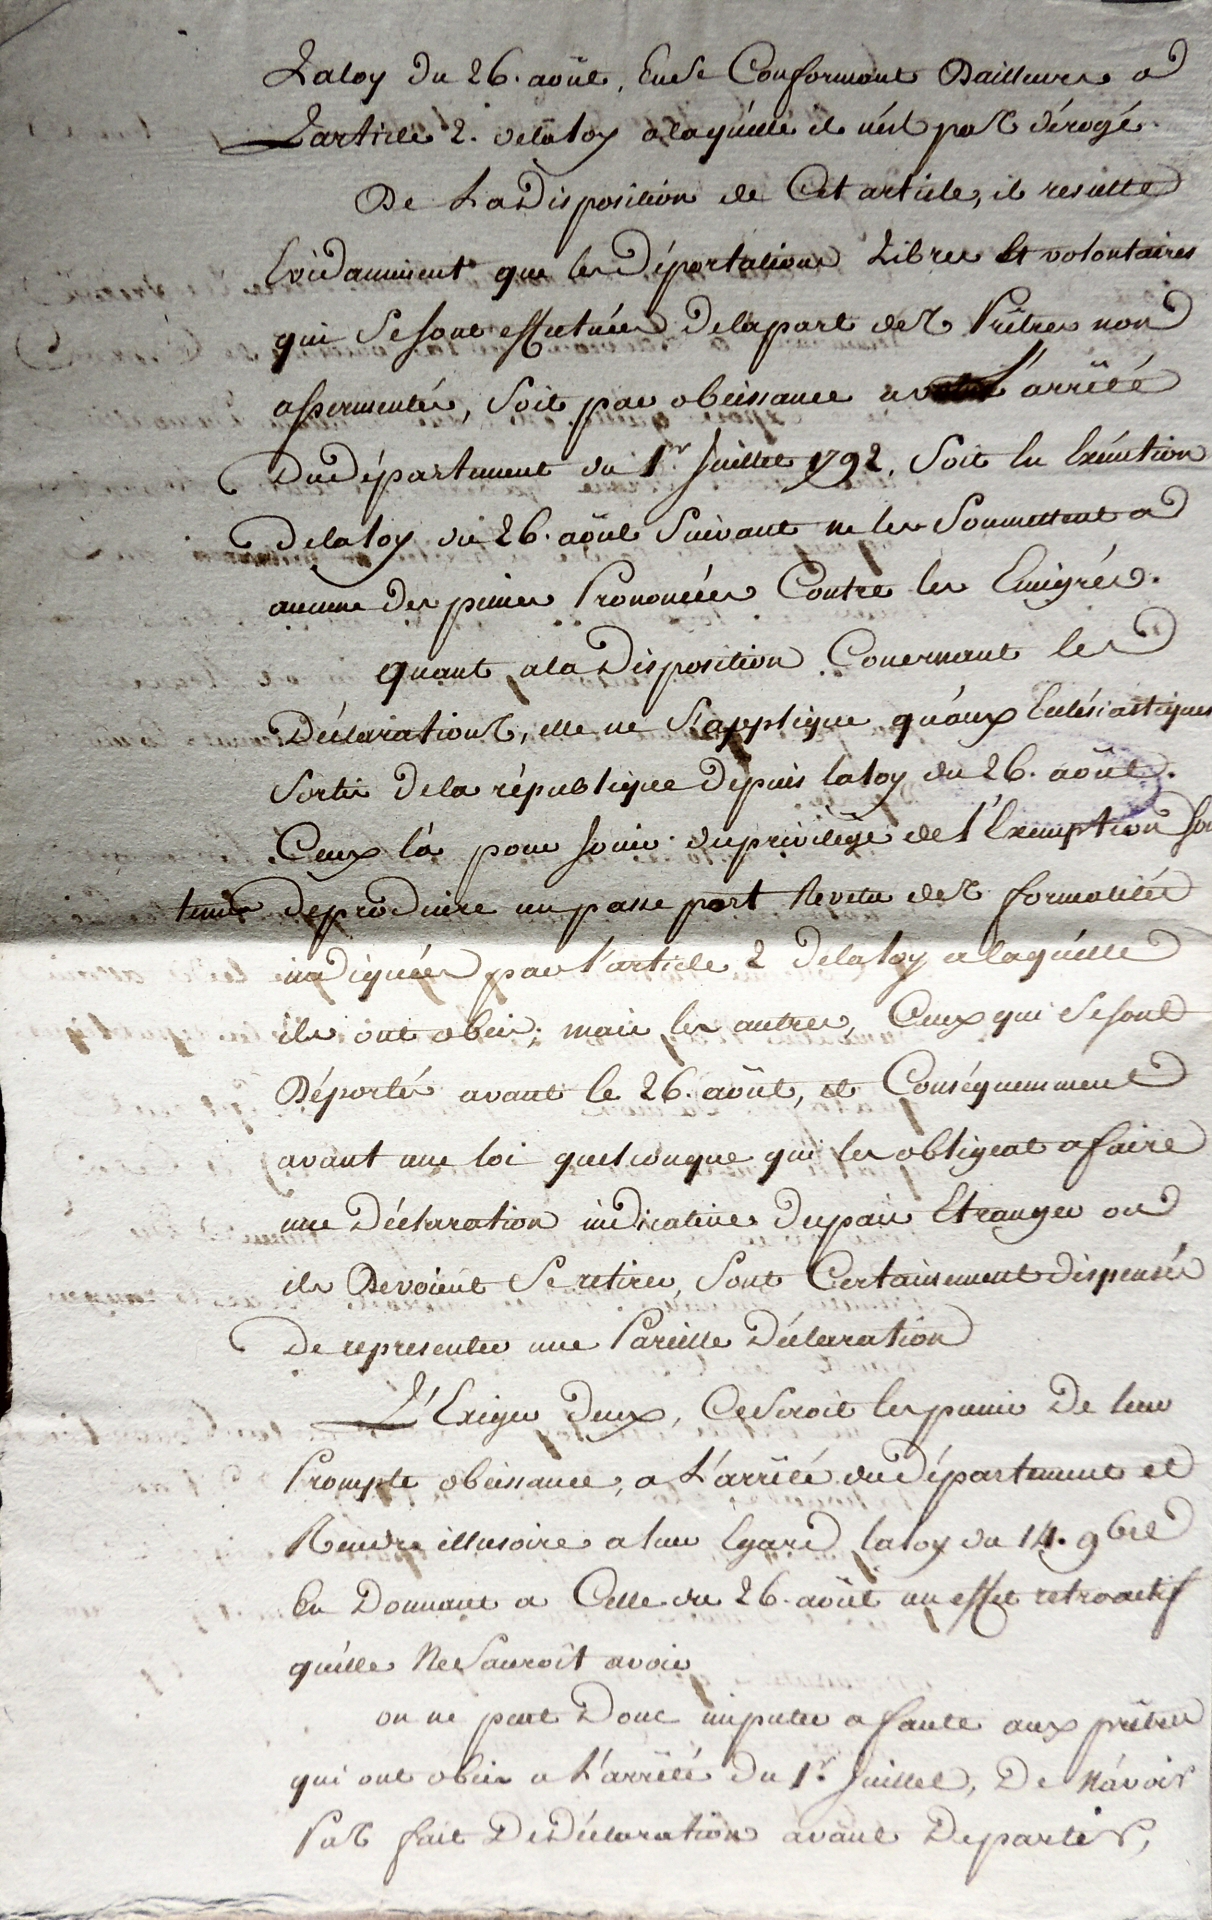 Laloy du 26. août, En se Conformant Dailleurs a
Larticle 2. delaloy alaquéllé il nést pas dérogé.
De La Disposition de Cet article, il resulte
Evidamment que les Déportations Libres Et volontaires
qui Sesont effectuées Delapart des Prêtres non
assermentés, Soit par obeissance a l'arrêté
Du Département du 1r Juillet 1792, Soit En Exécution
Delaloy du 26. août Suivant ne les Soumettent a
aucune des peines Prononcées Contre les Emigrés.
quant ala Disposition Concernant les
Déclarations, elle ne S'applique quáux Eclésiastiques
Sortis Dela république Depuis laloy du 26. août.
Ceux lá pour Jouir du privilége de l'Exemption Son
tenus deproduire un passe port Revetu des formalités
indiquées par l'article 2 Delaloy alaquélle
ils ont obéi; mais les autres, Ceux qui Sesont
Déportés avant le 26. août, et Conséquemment
avant une loi quelconque qui les obligeat afaire
une Déclaration indicative Dupais Etranger ou
ils Devoient Se retirer, Sont Certainement dispensés
De representer une Pareille Déclaration
L'Exiger deux, Ce Seroit les punir De leur
Prompte obeissance, a L'arrêté du Département et
Rendre illusoire a leur Egard laloy du 14. 9bre
En Donnant a Celle du 26. août un effet retroactif
quélle Ne Sauroit avoir
on ne peut Donc imputer a faute aux prêtres
qui ont obéi a L'arrêté du 1r Juillet, De Návoir
Pas fait De Déclaration avant De partir,